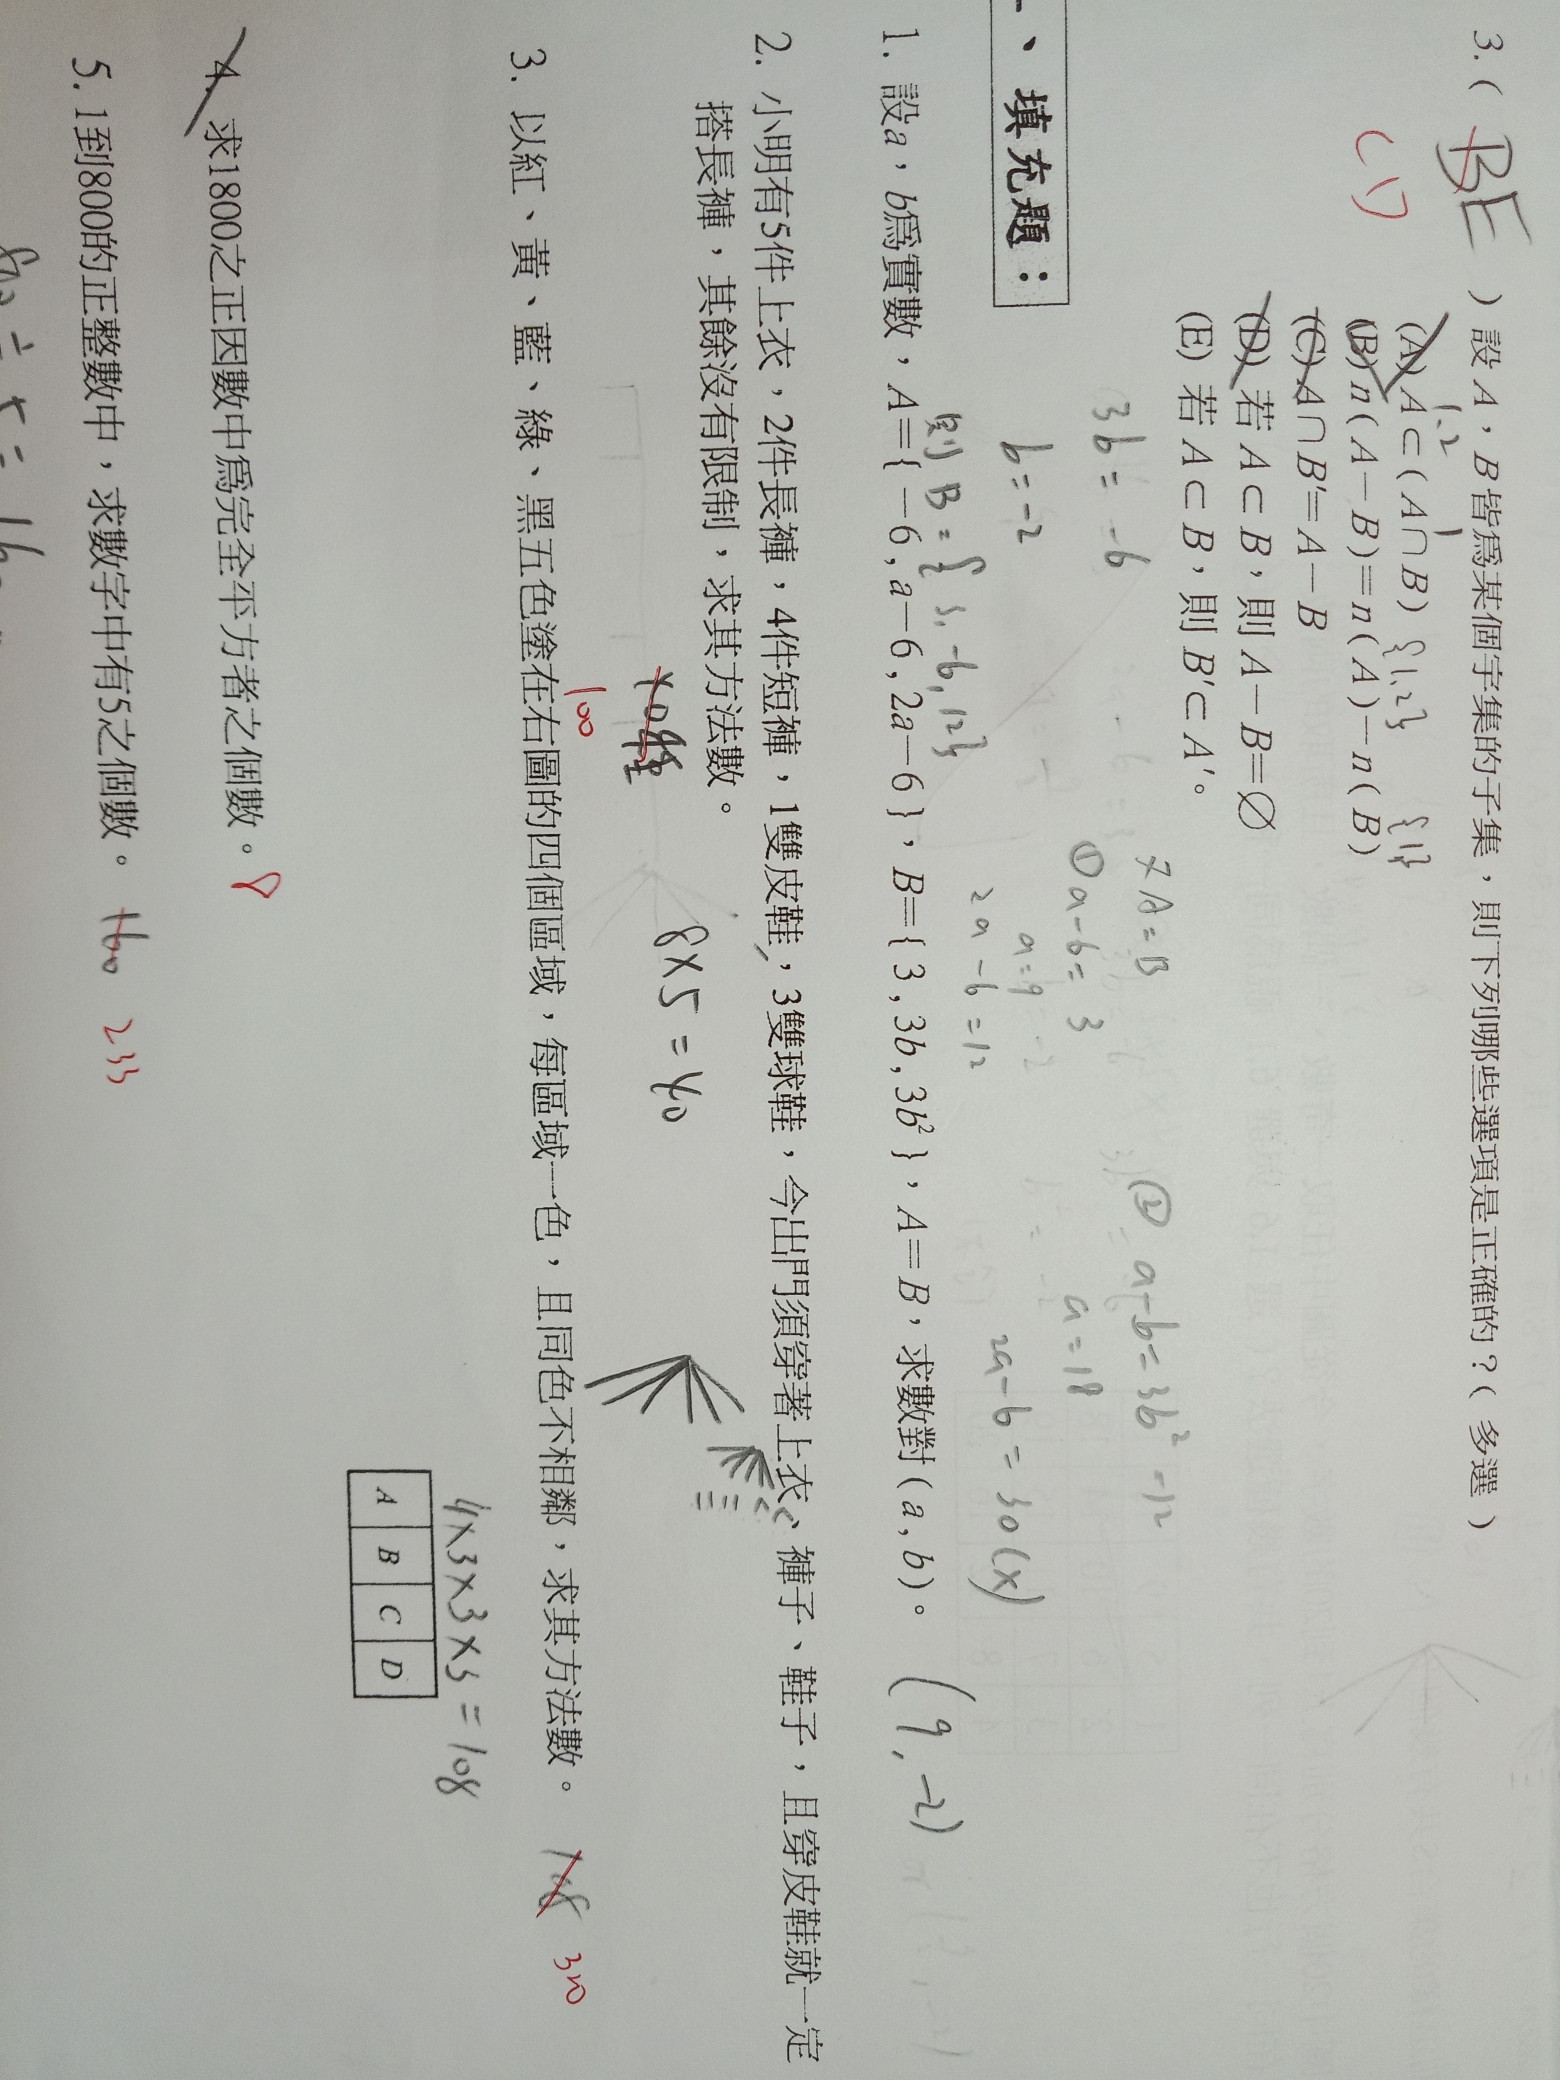 3.( BE )設A,B皆為某個宇集的子集,則下列哪些選項是正確的?(多選)
(A)A⊂(A∩B) {1,2} {1}
(B)n(A-B)=n(A)-n(B)
(C)A∩B'=A-B
(D)若A⊂B,則A-B=∅
(E)若A⊂B,則B'⊂A'。
3b=-6
b=-2
則B={3,-6,12}
∵A=B
①a-6=3
a=9
2a-6=12
②a-6=3b²=12
a=18
2a-6=30(x)
、填充題:
1. 設a,b為實數,A={-6,a-6,2a-6},B={3,3b,3b²},A=B,求數對(a,b)。 (9,-2)
2. 小明有5件上衣,2件長褲,4件短褲,1雙皮鞋,3雙球鞋,今出門須穿著上衣、褲子、鞋子,且穿皮鞋就一定
搭長褲,其餘沒有限制,求其方法數。
8×5=40
100
3. 以紅、黃、藍、綠、黑五色塗在右圖的四個區域,每區域一色,且同色不相鄰,求其方法數。 108 320
4×3×3×3=108
A B C D
4. 求1800之正因數中為完全平方者之個數。 8
5. 1到800的正整數中,求數字中有5之個數。 160 233